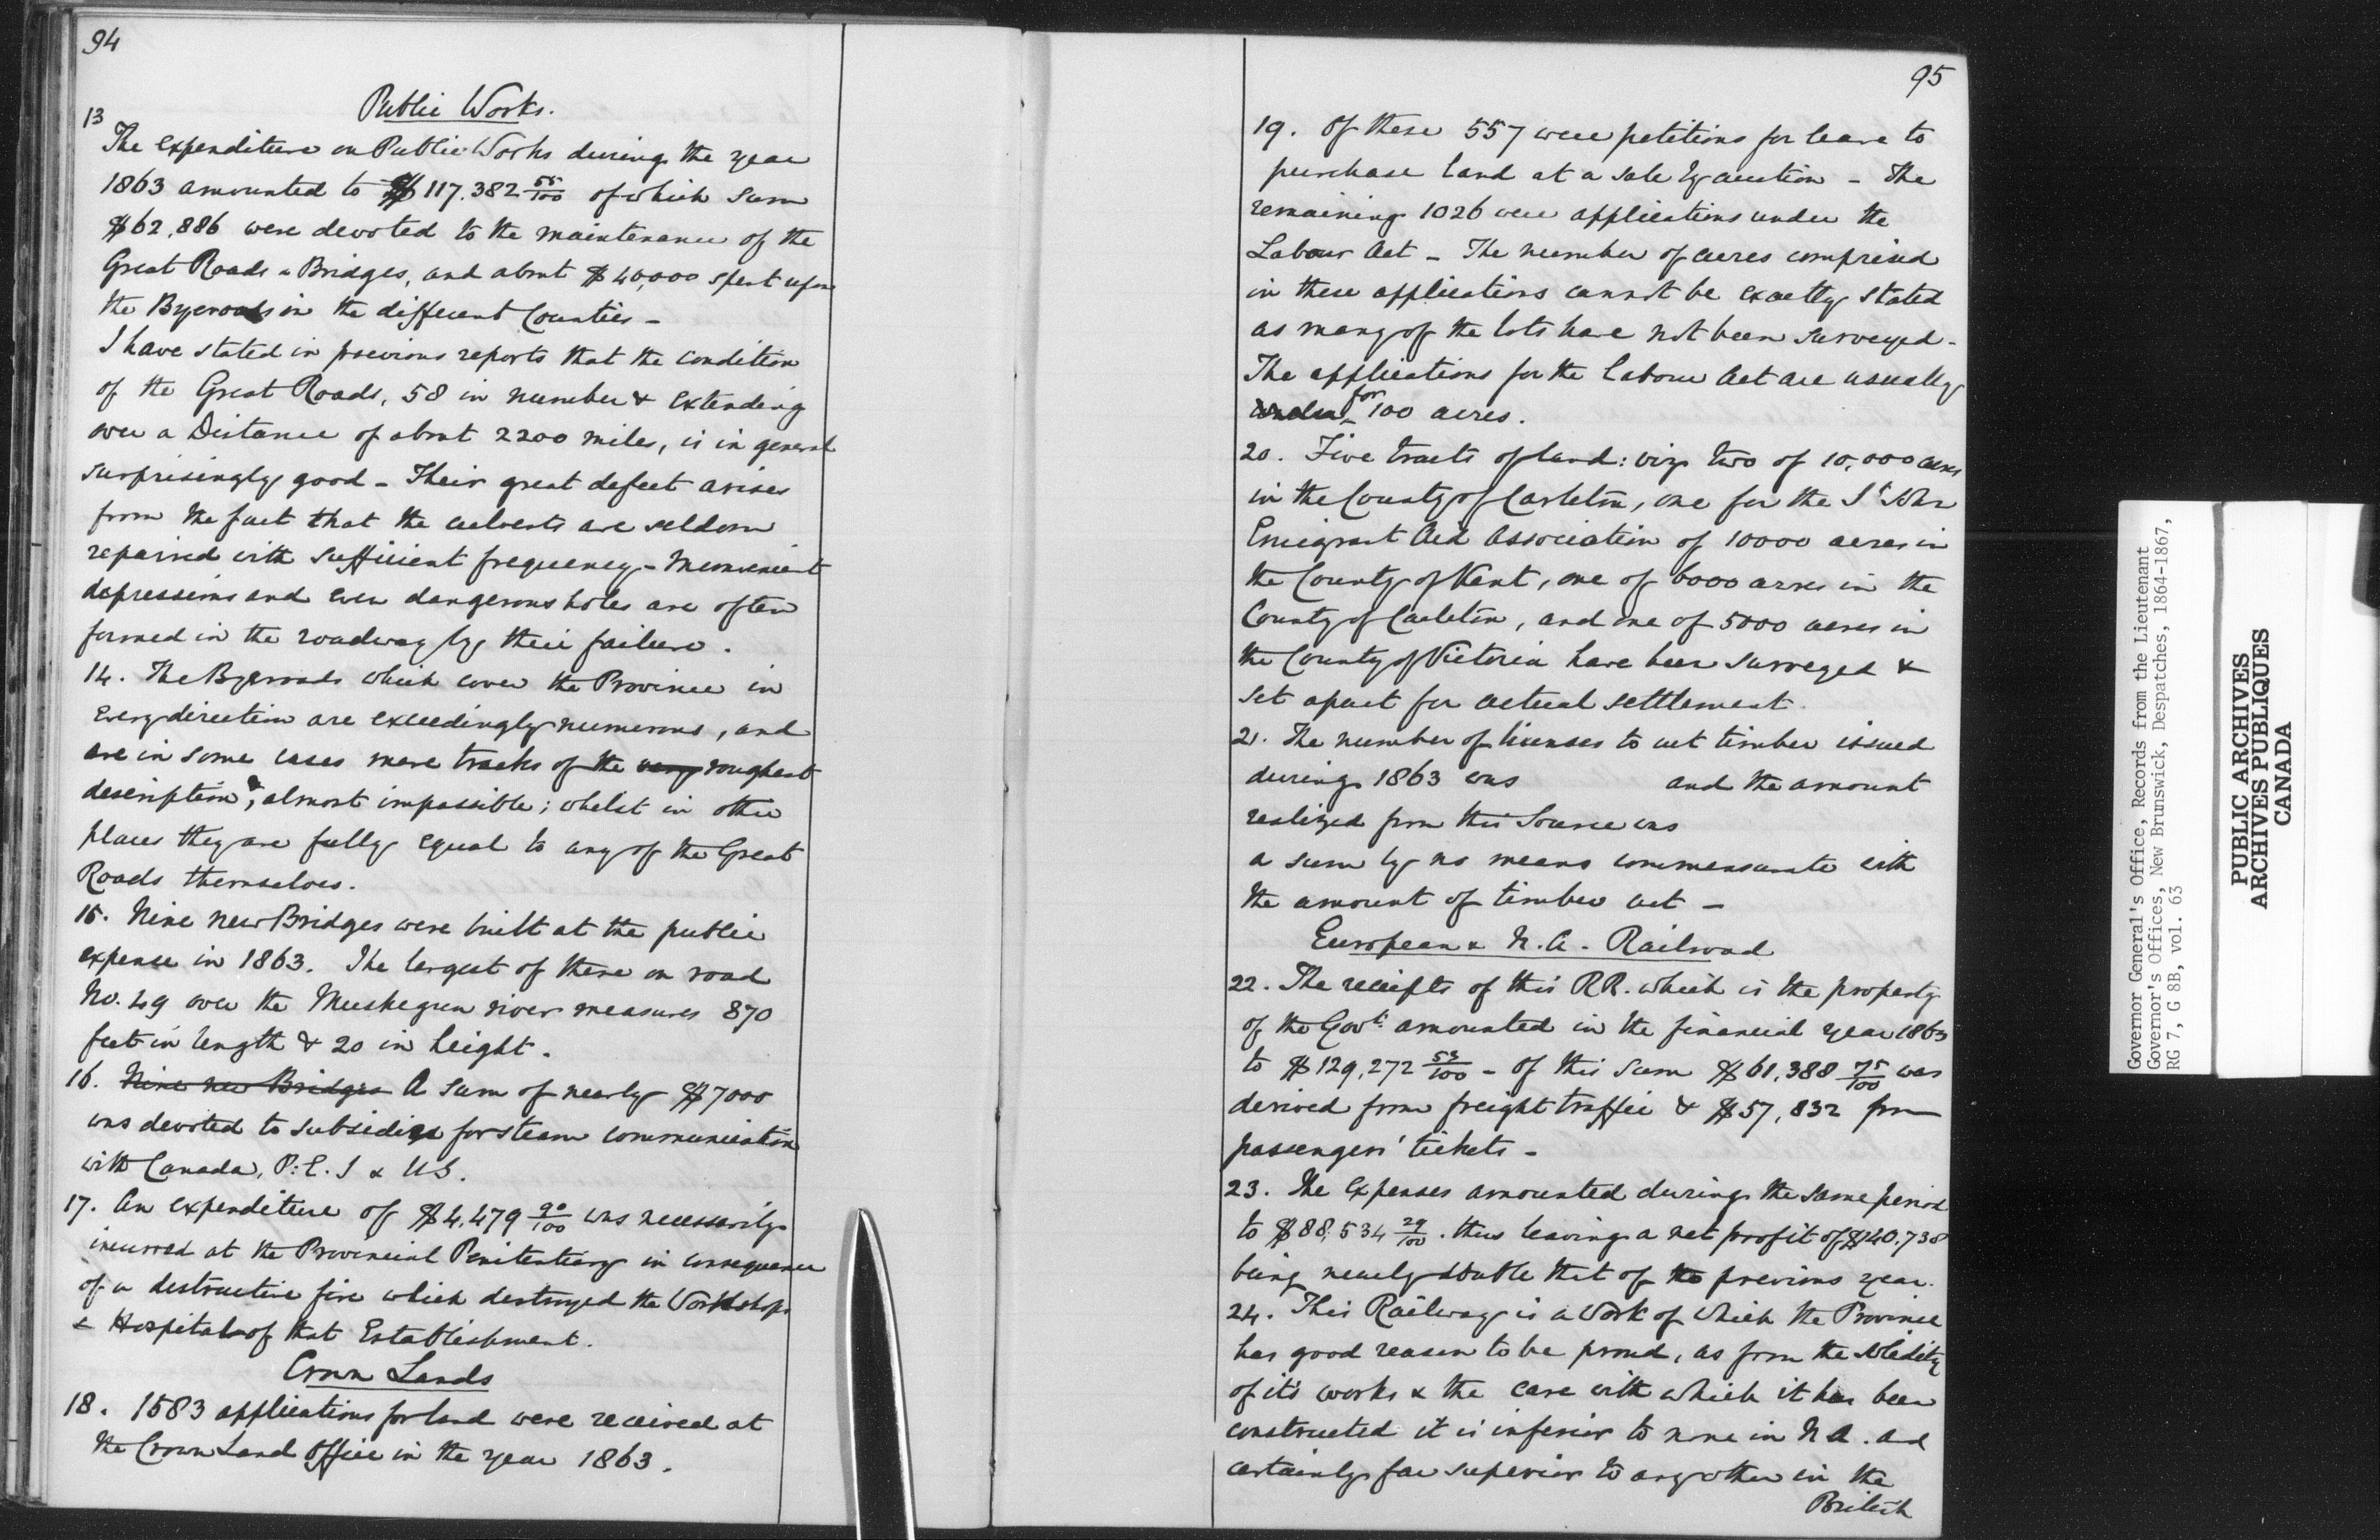 94
Public Works.
13
The expenditure on Public Works during the year
1863 amounted to $117.382 55/100 of which sum
$62,886 were devoted to the maintenance of the
Great Roads & Bridges, and about $40,000 spent upon
the Byeroads in the different Counties -
I have stated in previous reports that the condition
of the Great Roads, 58 in number & extending
over a Distance of about 2200 miles, is in general
surprisingly good - Their great defect arises
from the fact that the culverts are seldom
repaired with sufficient frequency - Inconvenient
depressions and even dangerous holes are often
formed in the roadway by their failure.
14. The Byeroads which cover the Province in
every direction are exceedingly numerous, and
are in some cases mere tracks of the very roughest
description, & almost impassible; whilst in other
places they are fully equal to any of the Great
Roads themselves.
15. Nine new Bridges were built at the public
expense in 1863. The largest of these on road
No. 29 over the Muskegun river measures 870
feet in length & 20 in height.
16. Nine new Bridges A sum of nearly $7000
was devoted to subsidies for steam communication
with Canada, P.E.I & US.
17. An expenditure of $4,479 90/100 was necessarily
incurred at the Provincial Penitentiary in consequence
of a destructive fire which destroyed the Workshops
& Hospital of that Establishment.
Crown Lands
18. 1583 applications for land were received at
the Crown Land Office in the year 1863.
95
19. Of these 557 were petitions for leave to
purchase land at a sale by auction - The
remaining 1026 were applications under the
Labour Act - The number of acres comprised
in these applications cannot be exactly stated
as many of the lots have not been surveyed -
The applications for the Labour Act are usually
under for 100 acres.
20. Five tracts of land: viz two of 10,000 acres
in the County of Carleton, one for the St John
Emigrant Aid Association of 10000 acres in
the County of Kent, one of 6000 acres in the
County of Carleton, and one of 5000 acres in
the County of Victoria have been surveyed &
set apart for actual settlement.
21. The number of licenses to cut timber issued
during 1863 was and the amount
realized from this Source was
a sum by no means commensurate with
the amount of timber cut -
European & N.A. Railroad
22. The receipts of this RR. which is the property
of the Govt. amounted in the financial year 1863
to $129,272 53/100 - Of this sum $61,388 75/100 was
derived from freight traffic & $57,832 from
passengers' tickets -
23. The expenses amounted during the same period
to $88,534 29/100. thus leaving a net profit of $40.738
being nearly double that of the previous year.
24. This Railway is a Work of which the Province
has good reason to be proud, as from the solidity
of it's works & the care with which it has been
constructed it is inferior to none in N.A. and
certainly far superior to any other in the
British
Governor General's Office, Records from the Lieutenant
Governor's Offices, New Brunswick, Despatches, 1864-1867,
RG 7, G 8B, vol. 63
PUBLIC ARCHIVES
ARCHIVES PUBLIQUES
CANADA